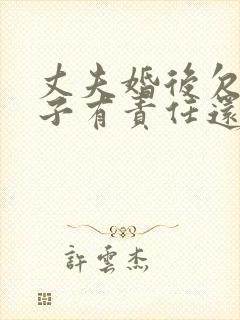 丈夫婚後欠
子有責任還
許雲杰